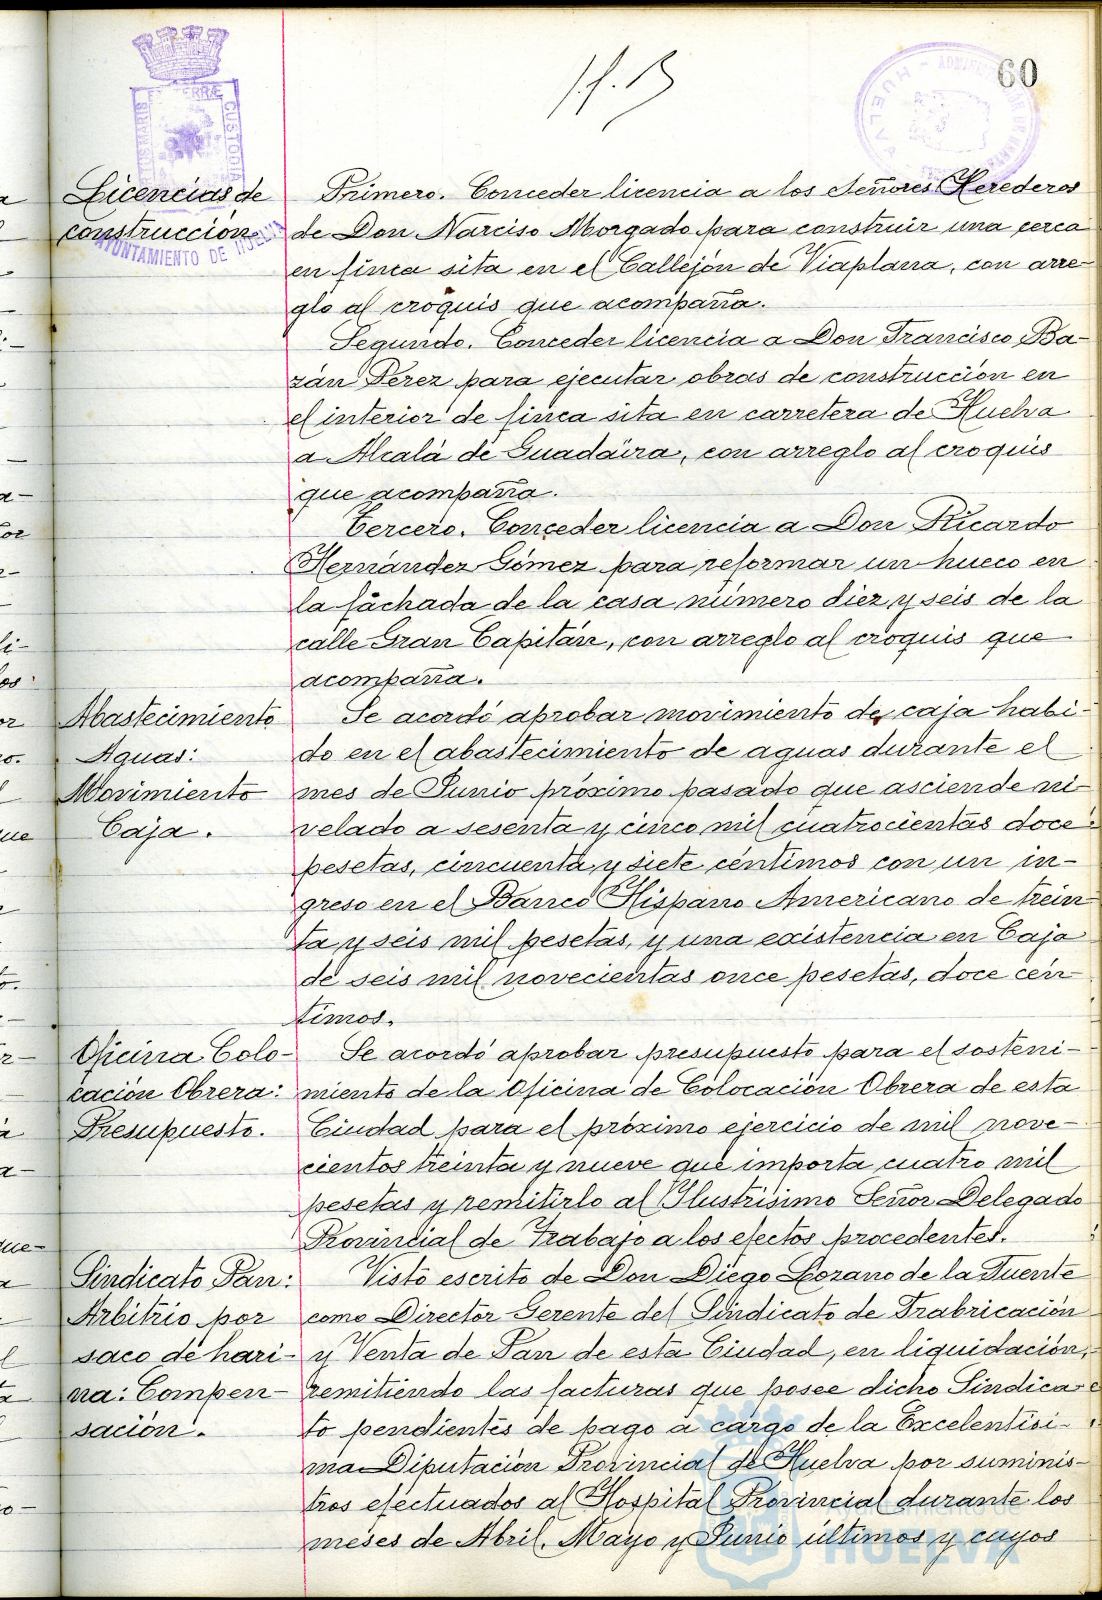 60
Licencias de
construcción.
AYUNTAMIENTO DE HUELVA
Primero. Conceder licencia a los Señores Herederos
de Don Narciso Morgado para construir una cerca
en finca sita en el Callejón de Viaplana, con arre-
glo al croquis que acompaña.
Segundo. Conceder licencia a Don Francisco Ba-
zán Pérez para ejecutar obras de construcción en
el interior de finca sita en carretera de Huelva
a Alcalá de Guadáira, con arreglo al croquis
que acompaña.
Tercero. Conceder licencia a Don Ricardo
Hernández Gómez para reformar un hueco en
la fachada de la casa número diez y seis de la
calle Gran Capitán, con arreglo al croquis que
acompaña.
Abastecimiento
Aguas:
Movimiento
Caja.
Se acordó aprobar movimiento de caja habi-
do en el abastecimiento de aguas durante el
mes de Junio próximo pasado que asciende ni-
velado a sesenta y cinco mil cuatrocientas doce
pesetas, cincuenta y siete céntimos con un in-
greso en el Banco Hispano Americano de trein-
ta y seis mil pesetas, y una existencia en Caja
de seis mil novecientas once pesetas, doce cén-
timos.
Oficina Colo-
cación Obrera:
Presupuesto.
Se acordó aprobar presupuesto para el sosteni-
miento de la Oficina de Colocación Obrera de esta
Ciudad para el próximo ejercicio de mil nove-
cientos treinta y nueve que importa cuatro mil
pesetas y remitirlo al Ilustrísimo Señor Delegado
Provincial de Trabajo a los efectos procedentes.
Sindicato Pan:
Arbitrio por
saco de hari-
na: Compen-
sación.
Visto escrito de Don Diego Lozano de la Fuente
como Director Gerente del Sindicato de Frabricación
y Venta de Pan de esta Ciudad, en liquidación,
remitiendo las facturas que posee dicho Sindica-
to pendientes de pago a cargo de la Excelentísi-
ma Diputación Provincial de Huelva por suminis-
tros efectuados al Hospital Provincial durante los
meses de Abril, Mayo y Junio últimos y cuyos
Ayuntamiento de
HUELVA